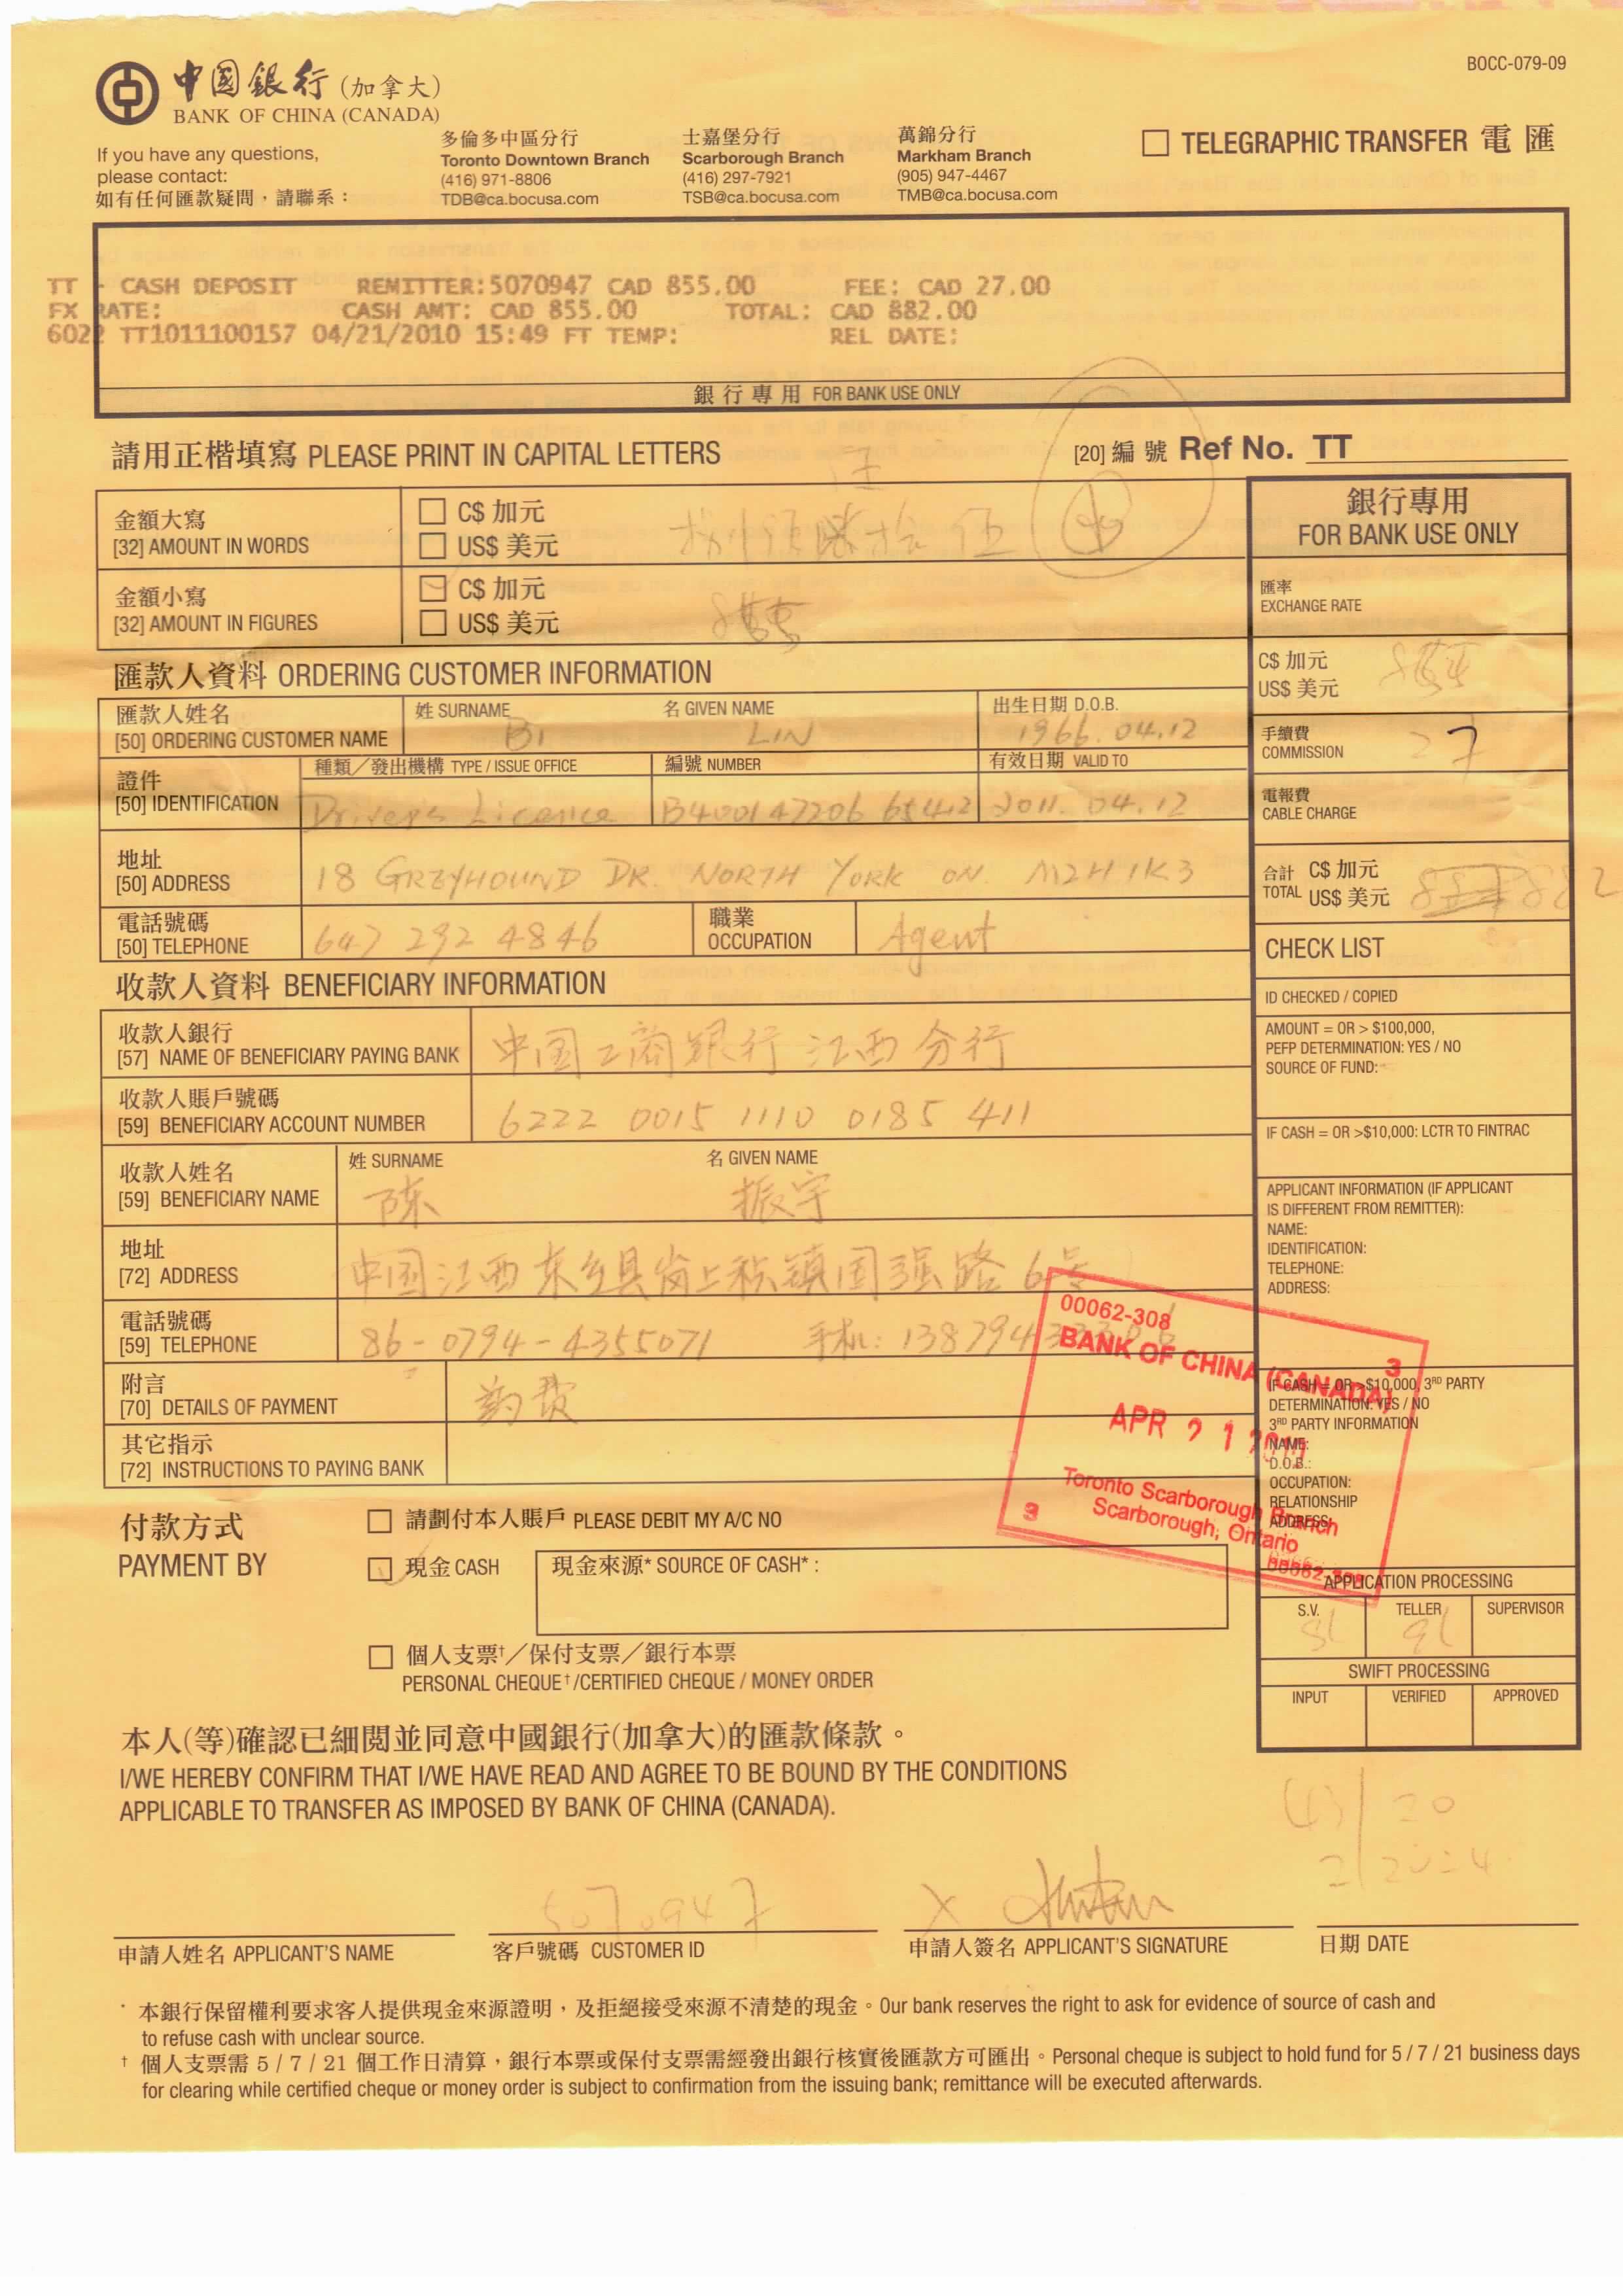 BOCC-079-09
中国銀行 (加拿大)
BANK OF CHINA (CANADA)
If you have any questions,
please contact:
如有任何匯款疑問，請聯系：
多倫多中區分行
Toronto Downtown Branch
(416) 971-8806
TDB@ca.bocusa.com
士嘉堡分行
Scarborough Branch
(416) 297-7921
TSB@ca.bocusa.com
萬錦分行
Markham Branch
(905) 947-4467
TMB@ca.bocusa.com
TELEGRAPHIC TRANSFER 電匯
TT - CASH DEPOSIT REMITTER:5070947 CAD 855.00 FEE: CAD 27.00
FX RATE: CASH AMT: CAD 855.00 TOTAL: CAD 882.00
6022 TT1011100157 04/21/2010 15:49 FT TEMP: REL DATE:
銀行專用 FOR BANK USE ONLY
請用正楷填寫 PLEASE PRINT IN CAPITAL LETTERS
[20] 編號 Ref No. TT
金額大寫
[32] AMOUNT IN WORDS
C$ 加元
US$ 美元
拾伍
金額小寫
[32] AMOUNT IN FIGURES
C$ 加元
US$ 美元
855
匯款人資料 ORDERING CUSTOMER INFORMATION
匯款人姓名
[50] ORDERING CUSTOMER NAME
姓 SURNAME
BI
名 GIVEN NAME
LIN
出生日期 D.O.B.
1966.04.12
證件
[50] IDENTIFICATION
種類／發出機構 TYPE / ISSUE OFFICE
Driver's Licence
編號 NUMBER
B4001 47206 65412
有效日期 VALID TO
2011.04.12
地址
[50] ADDRESS
18 GREYHOUND DR. NORTH YORK ON. M2H 1K3
電話號碼
[50] TELEPHONE
647 292 4846
職業
OCCUPATION
Agent
收款人資料 BENEFICIARY INFORMATION
收款人銀行
[57] NAME OF BENEFICIARY PAYING BANK
中国工商银行江西分行
收款人賬戶號碼
[59] BENEFICIARY ACCOUNT NUMBER
6222 0015 1110 0185 411
收款人姓名
[59] BENEFICIARY NAME
姓 SURNAME
陈
名 GIVEN NAME
振宇
地址
[72] ADDRESS
中国江西东乡县岗上积镇国强路6号
電話號碼
[59] TELEPHONE
86-0794-4355071 手机: 138794
附言
[70] DETAILS OF PAYMENT
其它指示
[72] INSTRUCTIONS TO PAYING BANK
付款方式
PAYMENT BY
請劃付本人賬戶 PLEASE DEBIT MY A/C NO
現金 CASH
現金來源* SOURCE OF CASH* :
個人支票†／保付支票／銀行本票
PERSONAL CHEQUE†/CERTIFIED CHEQUE / MONEY ORDER
銀行專用
FOR BANK USE ONLY
匯率
EXCHANGE RATE
C$ 加元
US$ 美元
855
手續費
COMMISSION
27
電報費
CABLE CHARGE
合計 C$ 加元
TOTAL US$ 美元
882
CHECK LIST
ID CHECKED / COPIED
AMOUNT = OR > $100,000,
PEFP DETERMINATION: YES / NO
SOURCE OF FUND:
IF CASH = OR >$10,000: LCTR TO FINTRAC
APPLICANT INFORMATION (IF APPLICANT
IS DIFFERENT FROM REMITTER):
NAME:
IDENTIFICATION:
TELEPHONE:
ADDRESS:
IF CASH = OR >$10,000, 3RD PARTY
DETERMINATION: YES / NO
3RD PARTY INFORMATION
NAME:
D.O.B.:
OCCUPATION:
RELATIONSHIP
ADDRESS:
00062-308
BANK OF CHINA (CANADA)
3
APR 21 2010
Toronto Scarborough Branch
Scarborough, Ontario
3
00062-308
APPLICATION PROCESSING
S.V. TELLER SUPERVISOR
SWIFT PROCESSING
INPUT VERIFIED APPROVED
本人(等)確認已細閱並同意中國銀行(加拿大)的匯款條款。
I/WE HEREBY CONFIRM THAT I/WE HAVE READ AND AGREE TO BE BOUND BY THE CONDITIONS
APPLICABLE TO TRANSFER AS IMPOSED BY BANK OF CHINA (CANADA).
5070947
X
申請人姓名 APPLICANT'S NAME
客戶號碼 CUSTOMER ID
申請人簽名 APPLICANT'S SIGNATURE
日期 DATE
* 本銀行保留權利要求客人提供現金來源證明，及拒絕接受來源不清楚的現金。Our bank reserves the right to ask for evidence of source of cash and
to refuse cash with unclear source.
† 個人支票需 5 / 7 / 21 個工作日清算，銀行本票或保付支票需經發出銀行核實後匯款方可匯出。Personal cheque is subject to hold fund for 5 / 7 / 21 business days
for clearing while certified cheque or money order is subject to confirmation from the issuing bank; remittance will be executed afterwards.